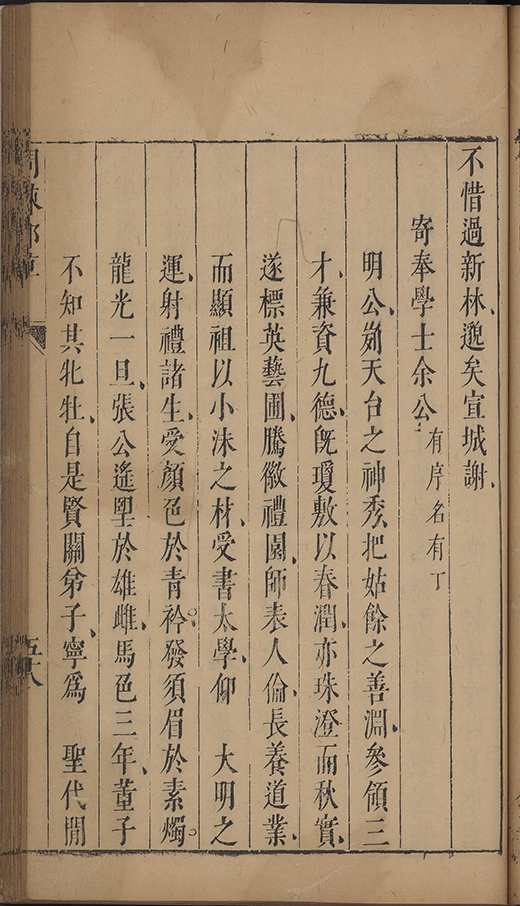 不惜過新林邈矣宣城謝
寄奉學士余公有序名有丁
明公剏天台之神秀把姑餘之善淵參領三
才兼資九德旣瓊敷以春潤亦珠澄而秋實
遂標英藝圃騰徽禮園師表人倫長養道業
而顯祖以小沫之材受書太學仰 大明之
運射禮諸生受顏色於青衿發須眉於素燭
龍光一旦張公遙朢於雄雌馬色三年董子
不知其牝牡自是賢關弟子寧爲 聖代閒